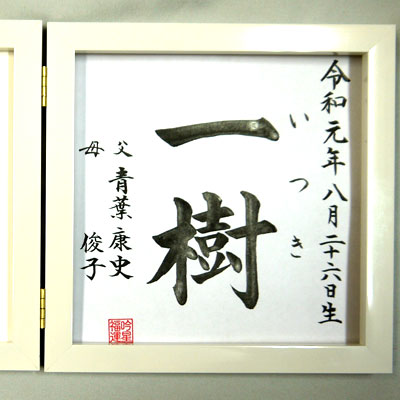 令和元年八月二十六日生
いつき
一樹
父 青葉康史
母 俊子
吟星
福運